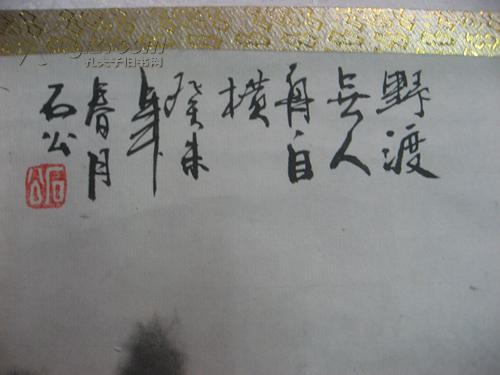 野渡
无人
舟自
横
癸未
年
春月
石公
石公
孔夫子旧书网